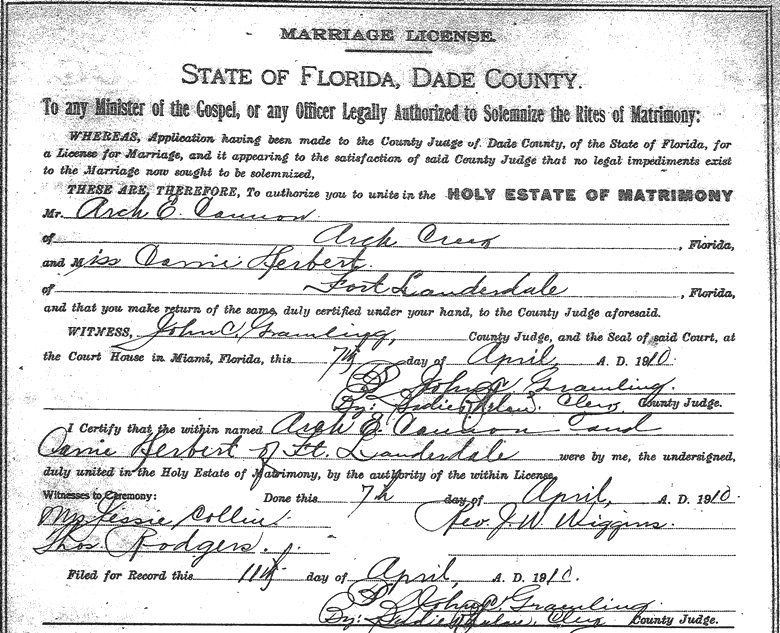 MARRIAGE LICENSE.
STATE OF FLORIDA, DADE COUNTY.
To any Minister of the Gospel, or any Officer Legally Authorized to Solemnize the Rites of Matrimony:
WHEREAS, Application having been made to the County Judge of Dade County, of the State of Florida, for
a License for Marriage, and it appearing to the satisfaction of said County Judge that no legal impediments exist
to the Marriage now sought to be solemnized,
THESE ARE, THEREFORE, To authorize you to unite in the HOLY ESTATE OF MATRIMONY
Mr. Arch E. Cannon
of Arch Creek, Florida,
and Miss Carrie Herbert
of Fort Lauderdale, Florida,
and that you make return of the same, duly certified under your hand, to the County Judge aforesaid.
WITNESS, John C. Gramling, County Judge, and the Seal of said Court, at
the Court House in Miami, Florida, this 7th day of April, A. D. 1910.
John C. Gramling.
By: Clerk County Judge.
I Certify that the within named Arch E. Cannon and
Carrie Herbert of Ft. Lauderdale were by me, the undersigned,
duly united in the Holy Estate of Matrimony, by the authority of the within License.
Witnesses to Ceremony: Done this 7th day of April, A. D. 1910.
Jessie Collins Rev. J. W. Wiggins.
Thos. Rodgers.
Filed for Record this 11th day of April, A. D. 1910.
John C. Gramling
By: Clerk County Judge.